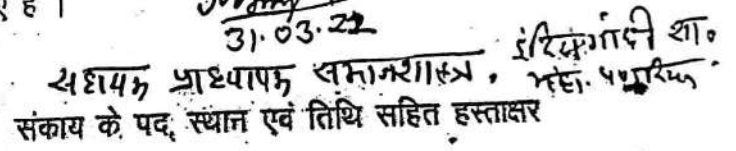 है।
31.03.22
सहायक प्राध्यापक समाजशास्त्र, इंदिरा गांधी शा॰
महा. पण्डरिया
संकाय के पद, स्थान एवं तिथि सहित हस्ताक्षर